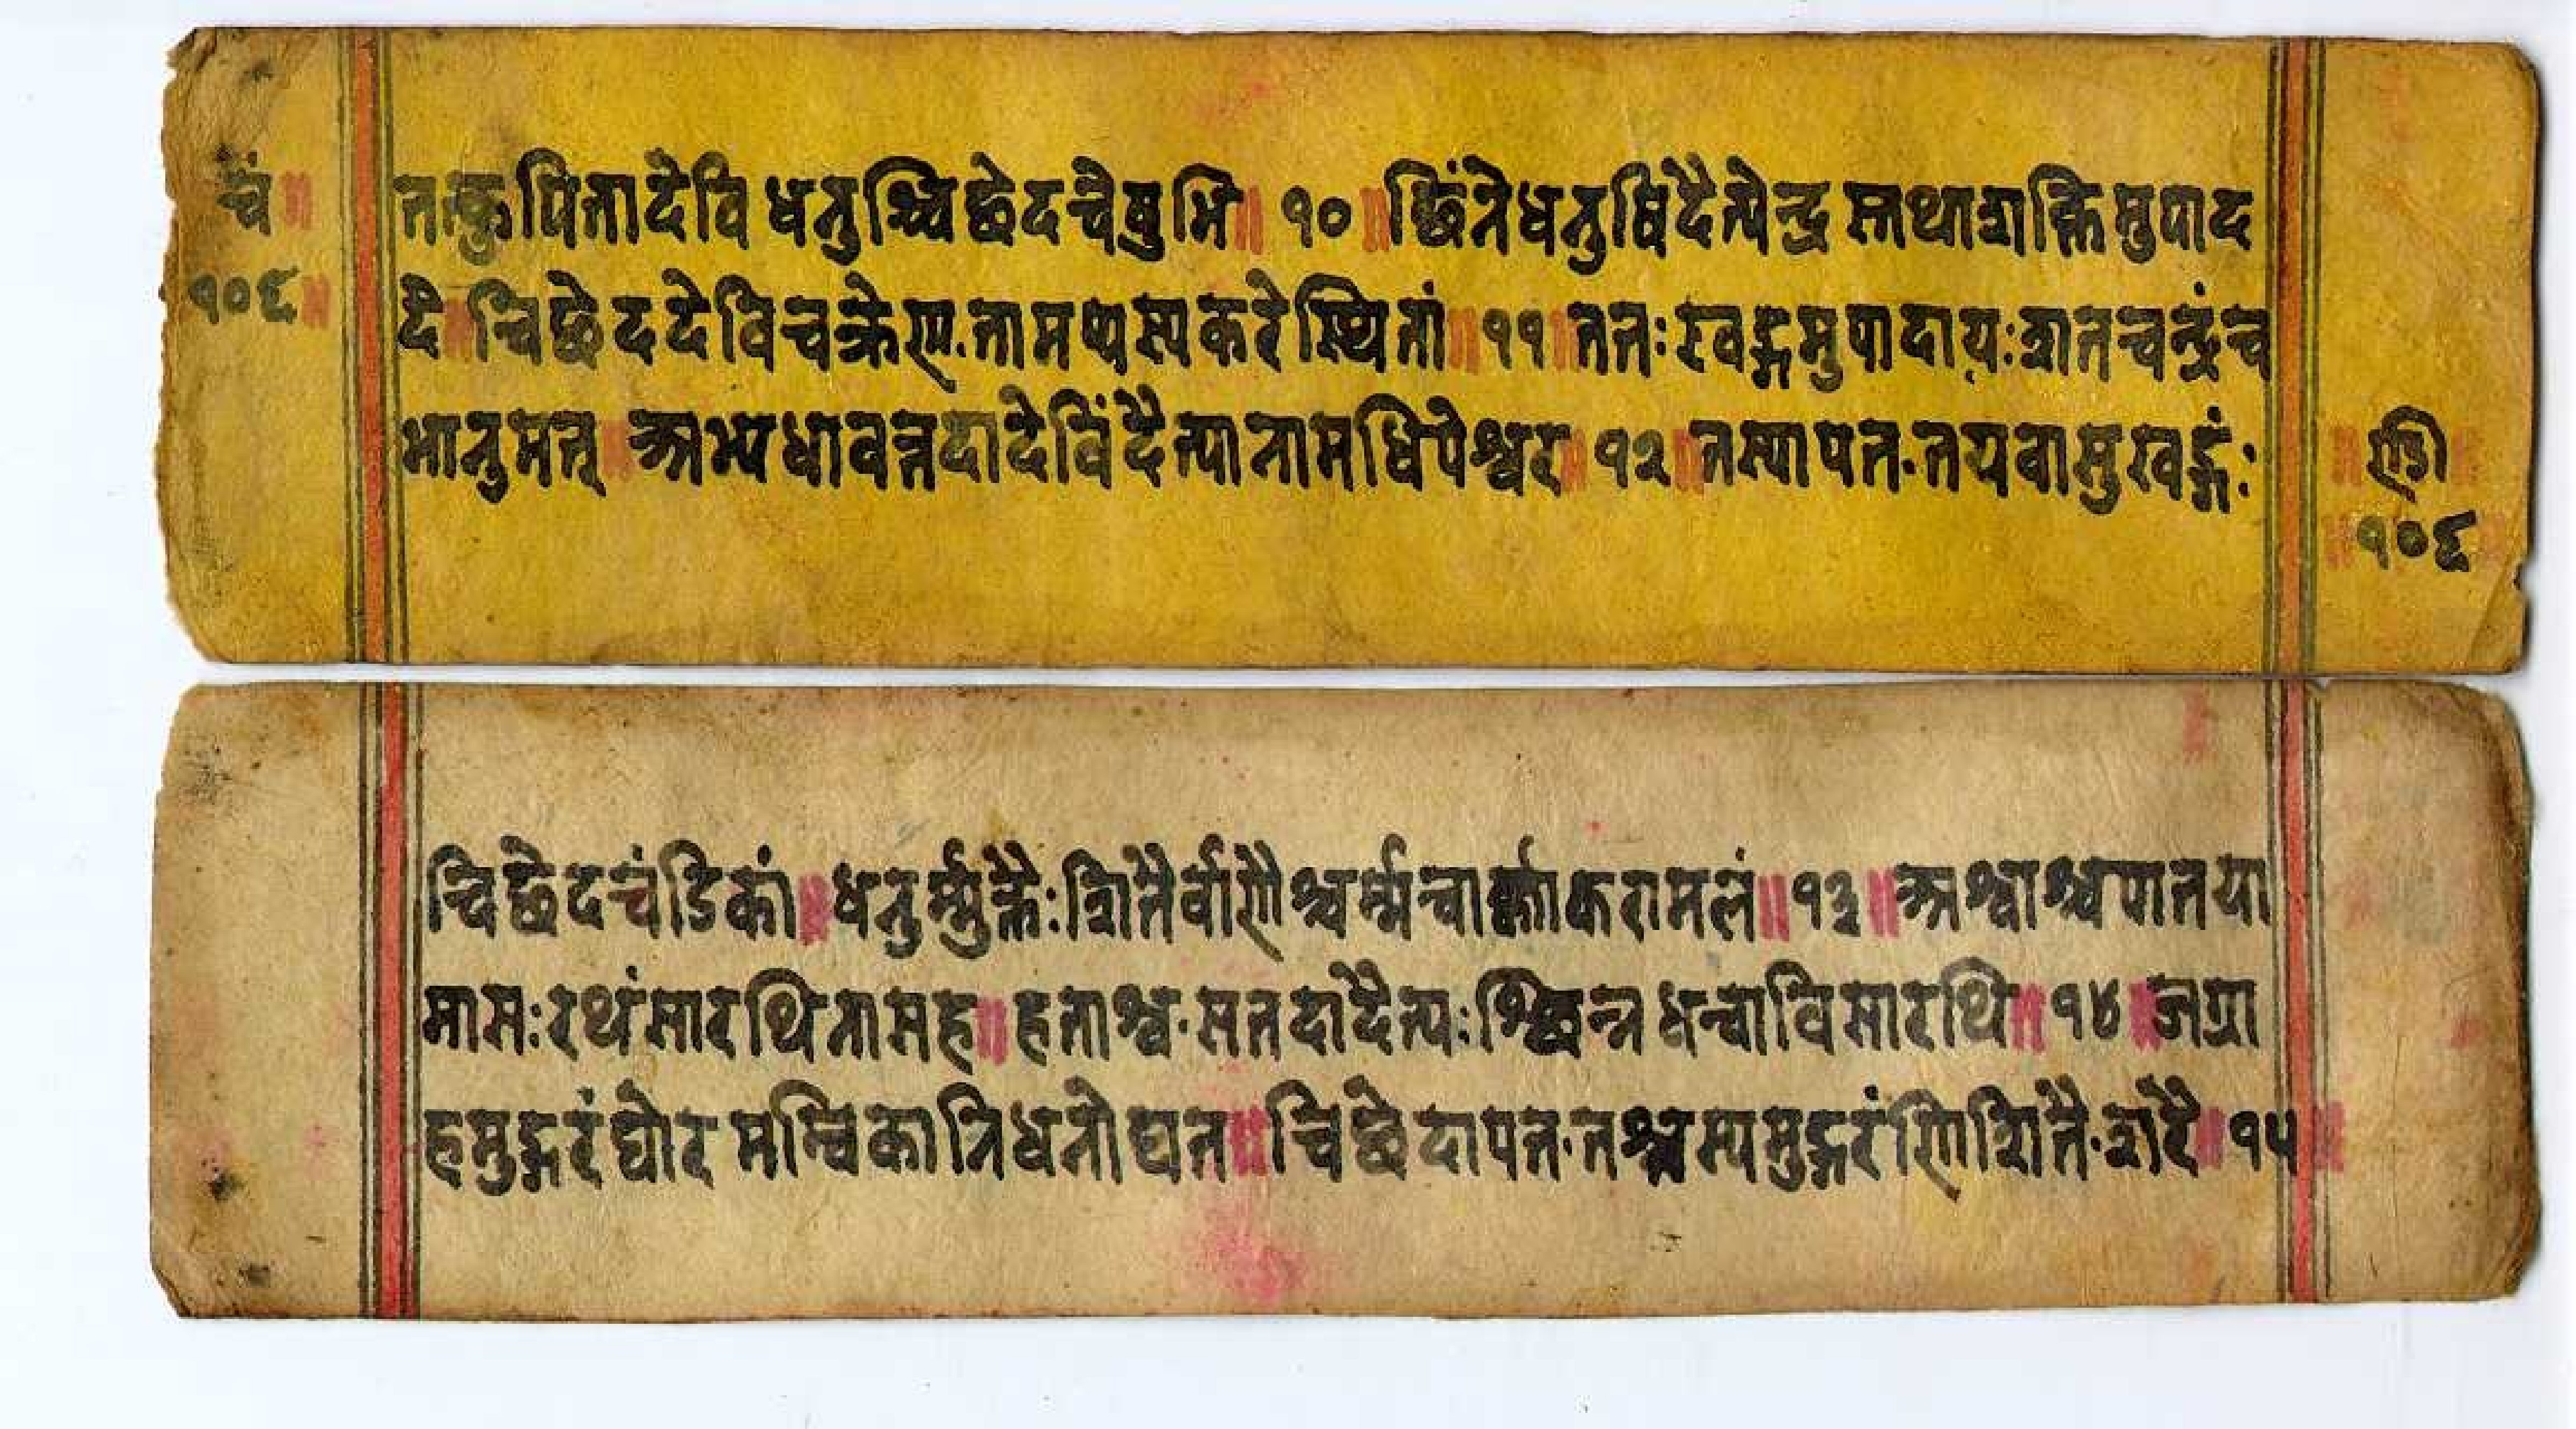 चं॥
१०६॥
तत्कुपितादेवि धनुश्चिछेदचैषुभि॥ १०॥ छिंनेधनुषिदैत्येन्द्र स्तथाशक्तिमुपाद
दे॥चिछेददेविचक्रेण.तामप्यस्यकरेस्थितां॥११॥ततःखड्गमुपादायःशतचन्द्रंच
भानुमत्॥अभ्यधावत्तदादेविंदैत्यानामधिपेश्वर॥१२॥तस्यापत.तयवासुखड्गंः
॥ण्डी॥
॥१०६॥
चिछेदचंडिका॥धनुर्म्मुक्तैःशितैर्वाणैश्चर्म्मचार्क्काकरामलं॥१३॥अश्वाश्चपातया
मासःरथंसारथिनासह॥हताश्व.सतदादैत्यःश्छिन्नधन्वाविसारथि॥१४॥जग्रा
हमुद्गरंघोर मम्बिकानिधनोद्यत॥चिछेदापत.तश्तस्यमुद्गरंणिशितै.शरै॥१५॥